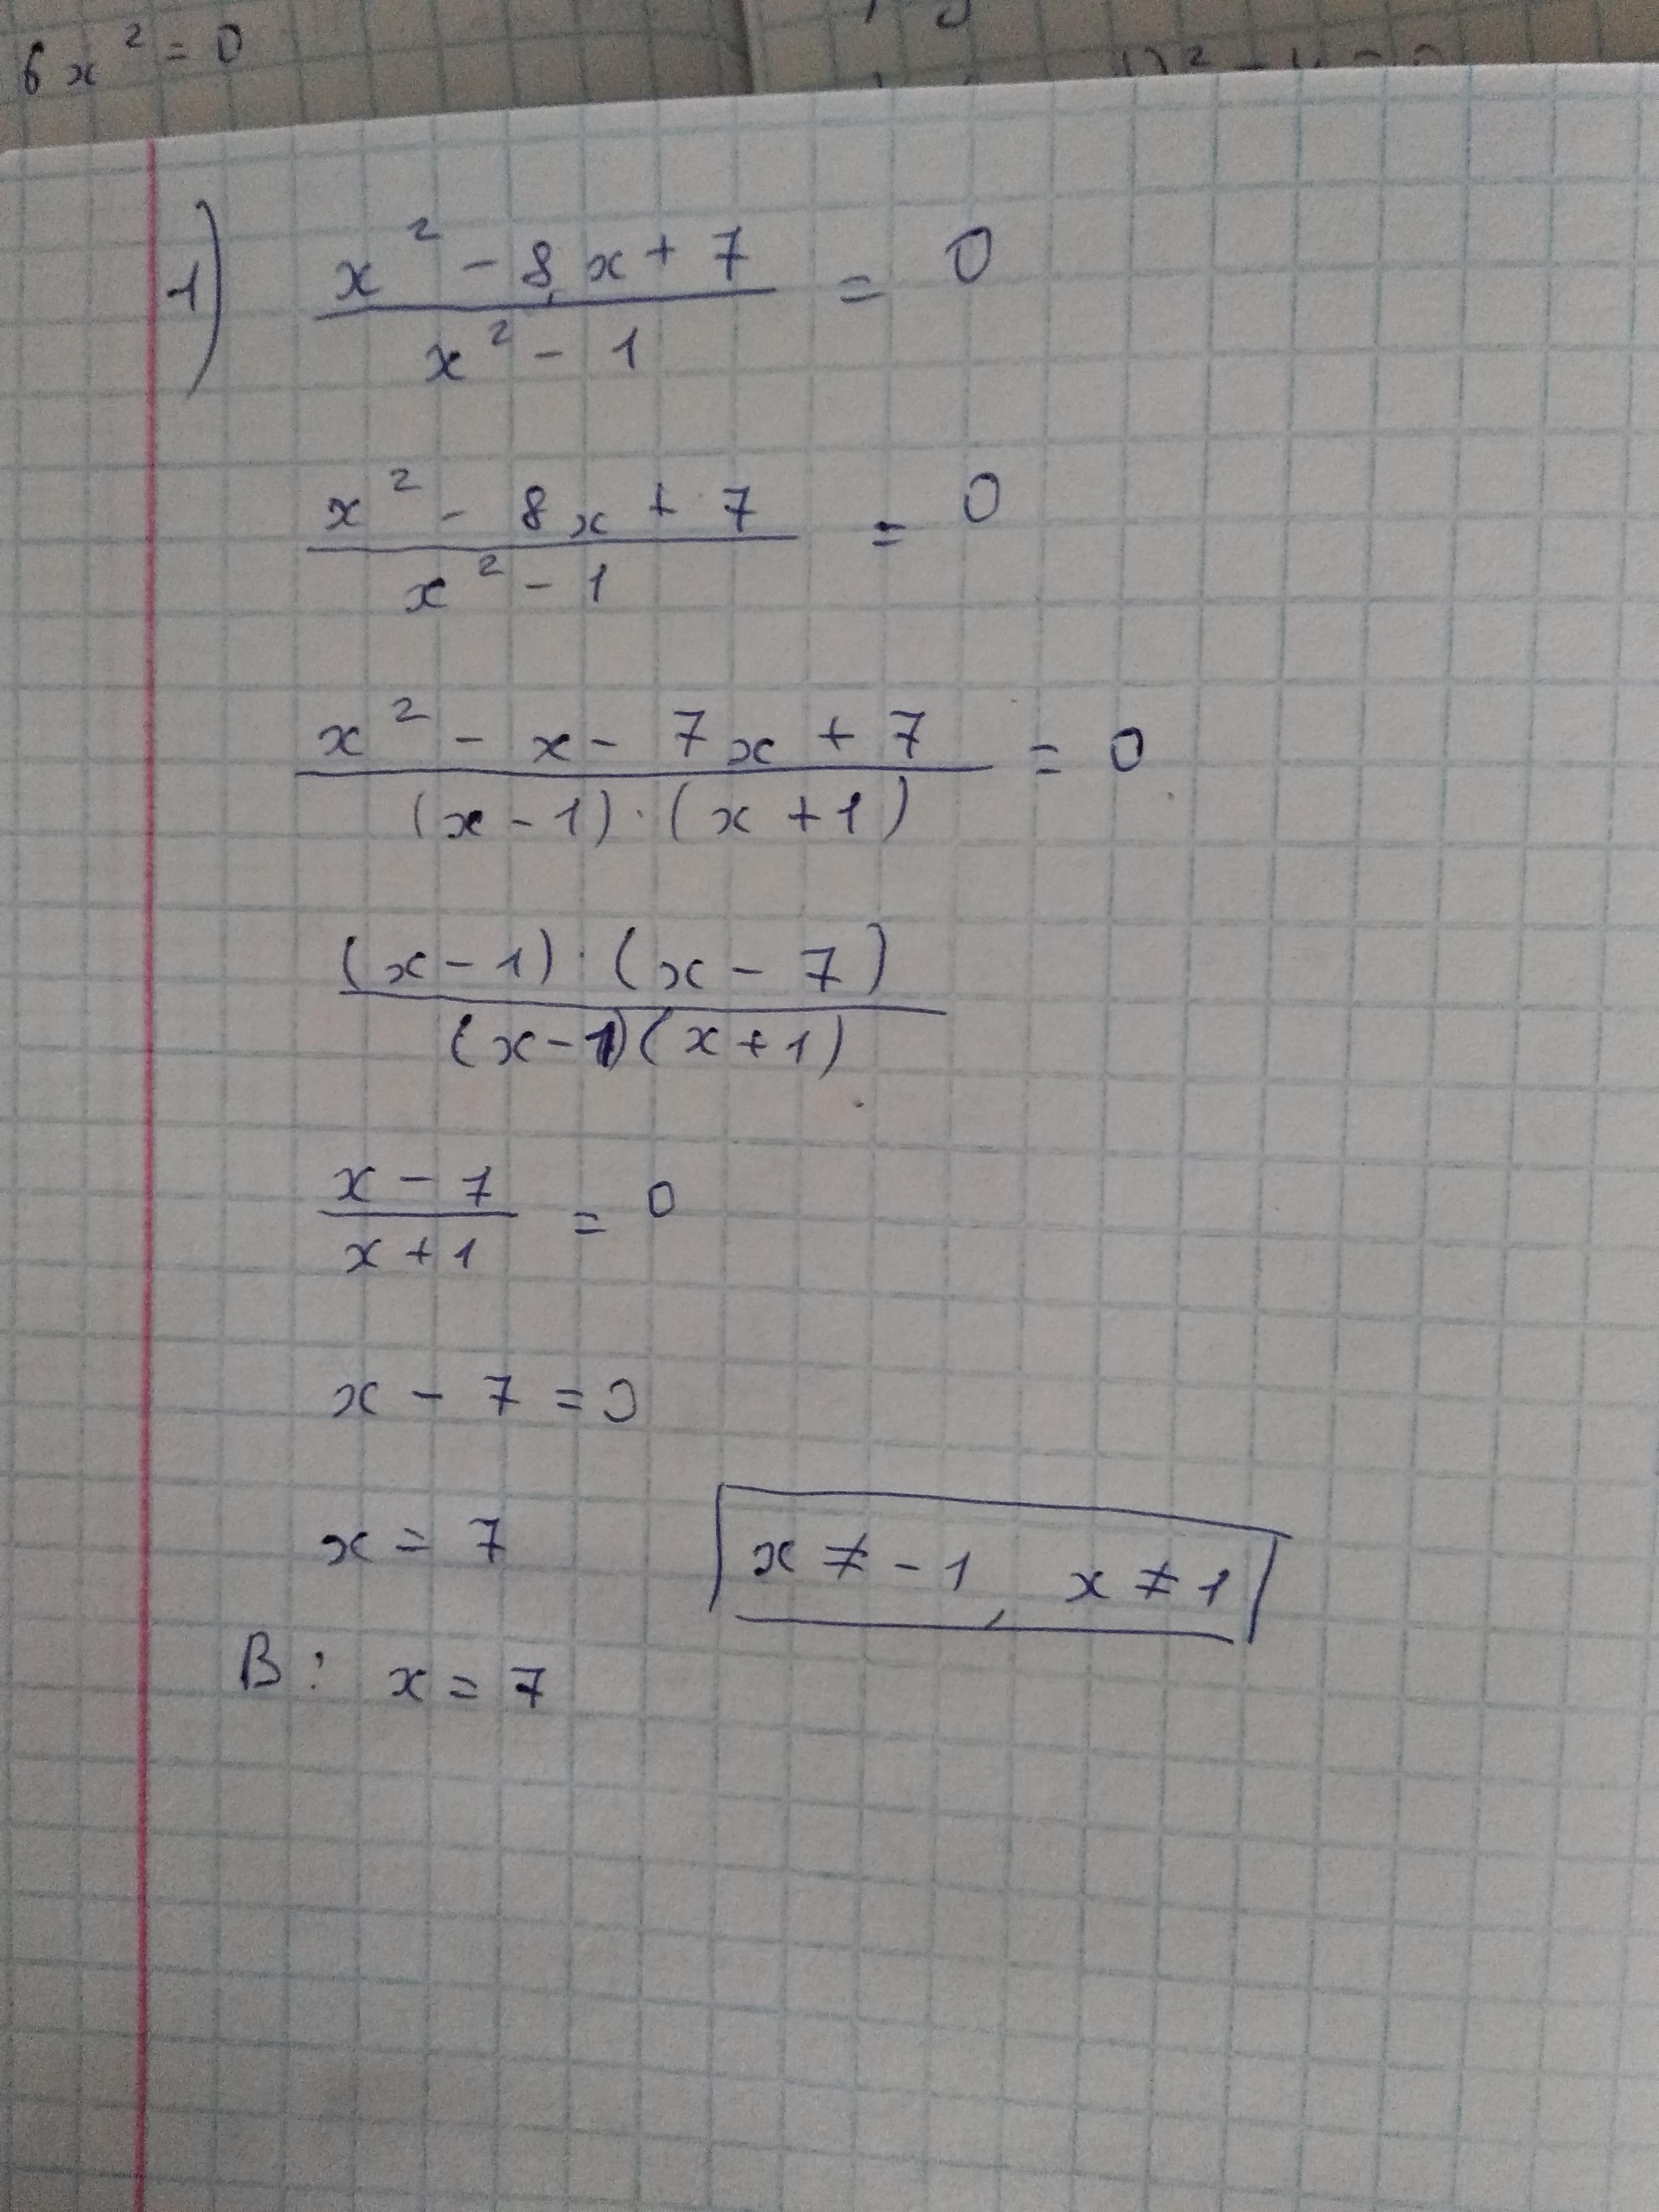 6x² = 0
1) (x² - 8x + 7)/(x² - 1) = 0
(x² - 8x + 7)/(x² - 1) = 0
(x² - x - 7x + 7)/((x - 1) · (x + 1)) = 0
((x - 1) · (x - 7))/((x - 1)(x + 1))
(x - 7)/(x + 1) = 0
x - 7 = 0
x = 7 x ≠ -1, x ≠ 1
В: x = 7